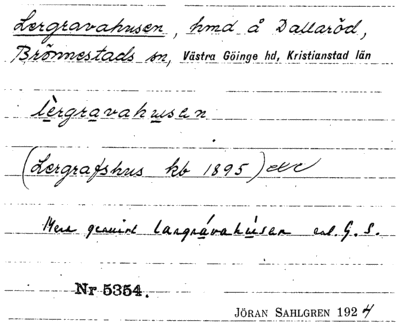 Lergravahusen, hmd å Dallaröd,
Brönnestads sn, Västra Göinge hd, Kristianstad län
lèrgravahusen
(Lergrafshus kb 1895)
Mera genuint largrávahúsen enl. G. S.
Nr 5354.
JÖRAN SAHLGREN 1924